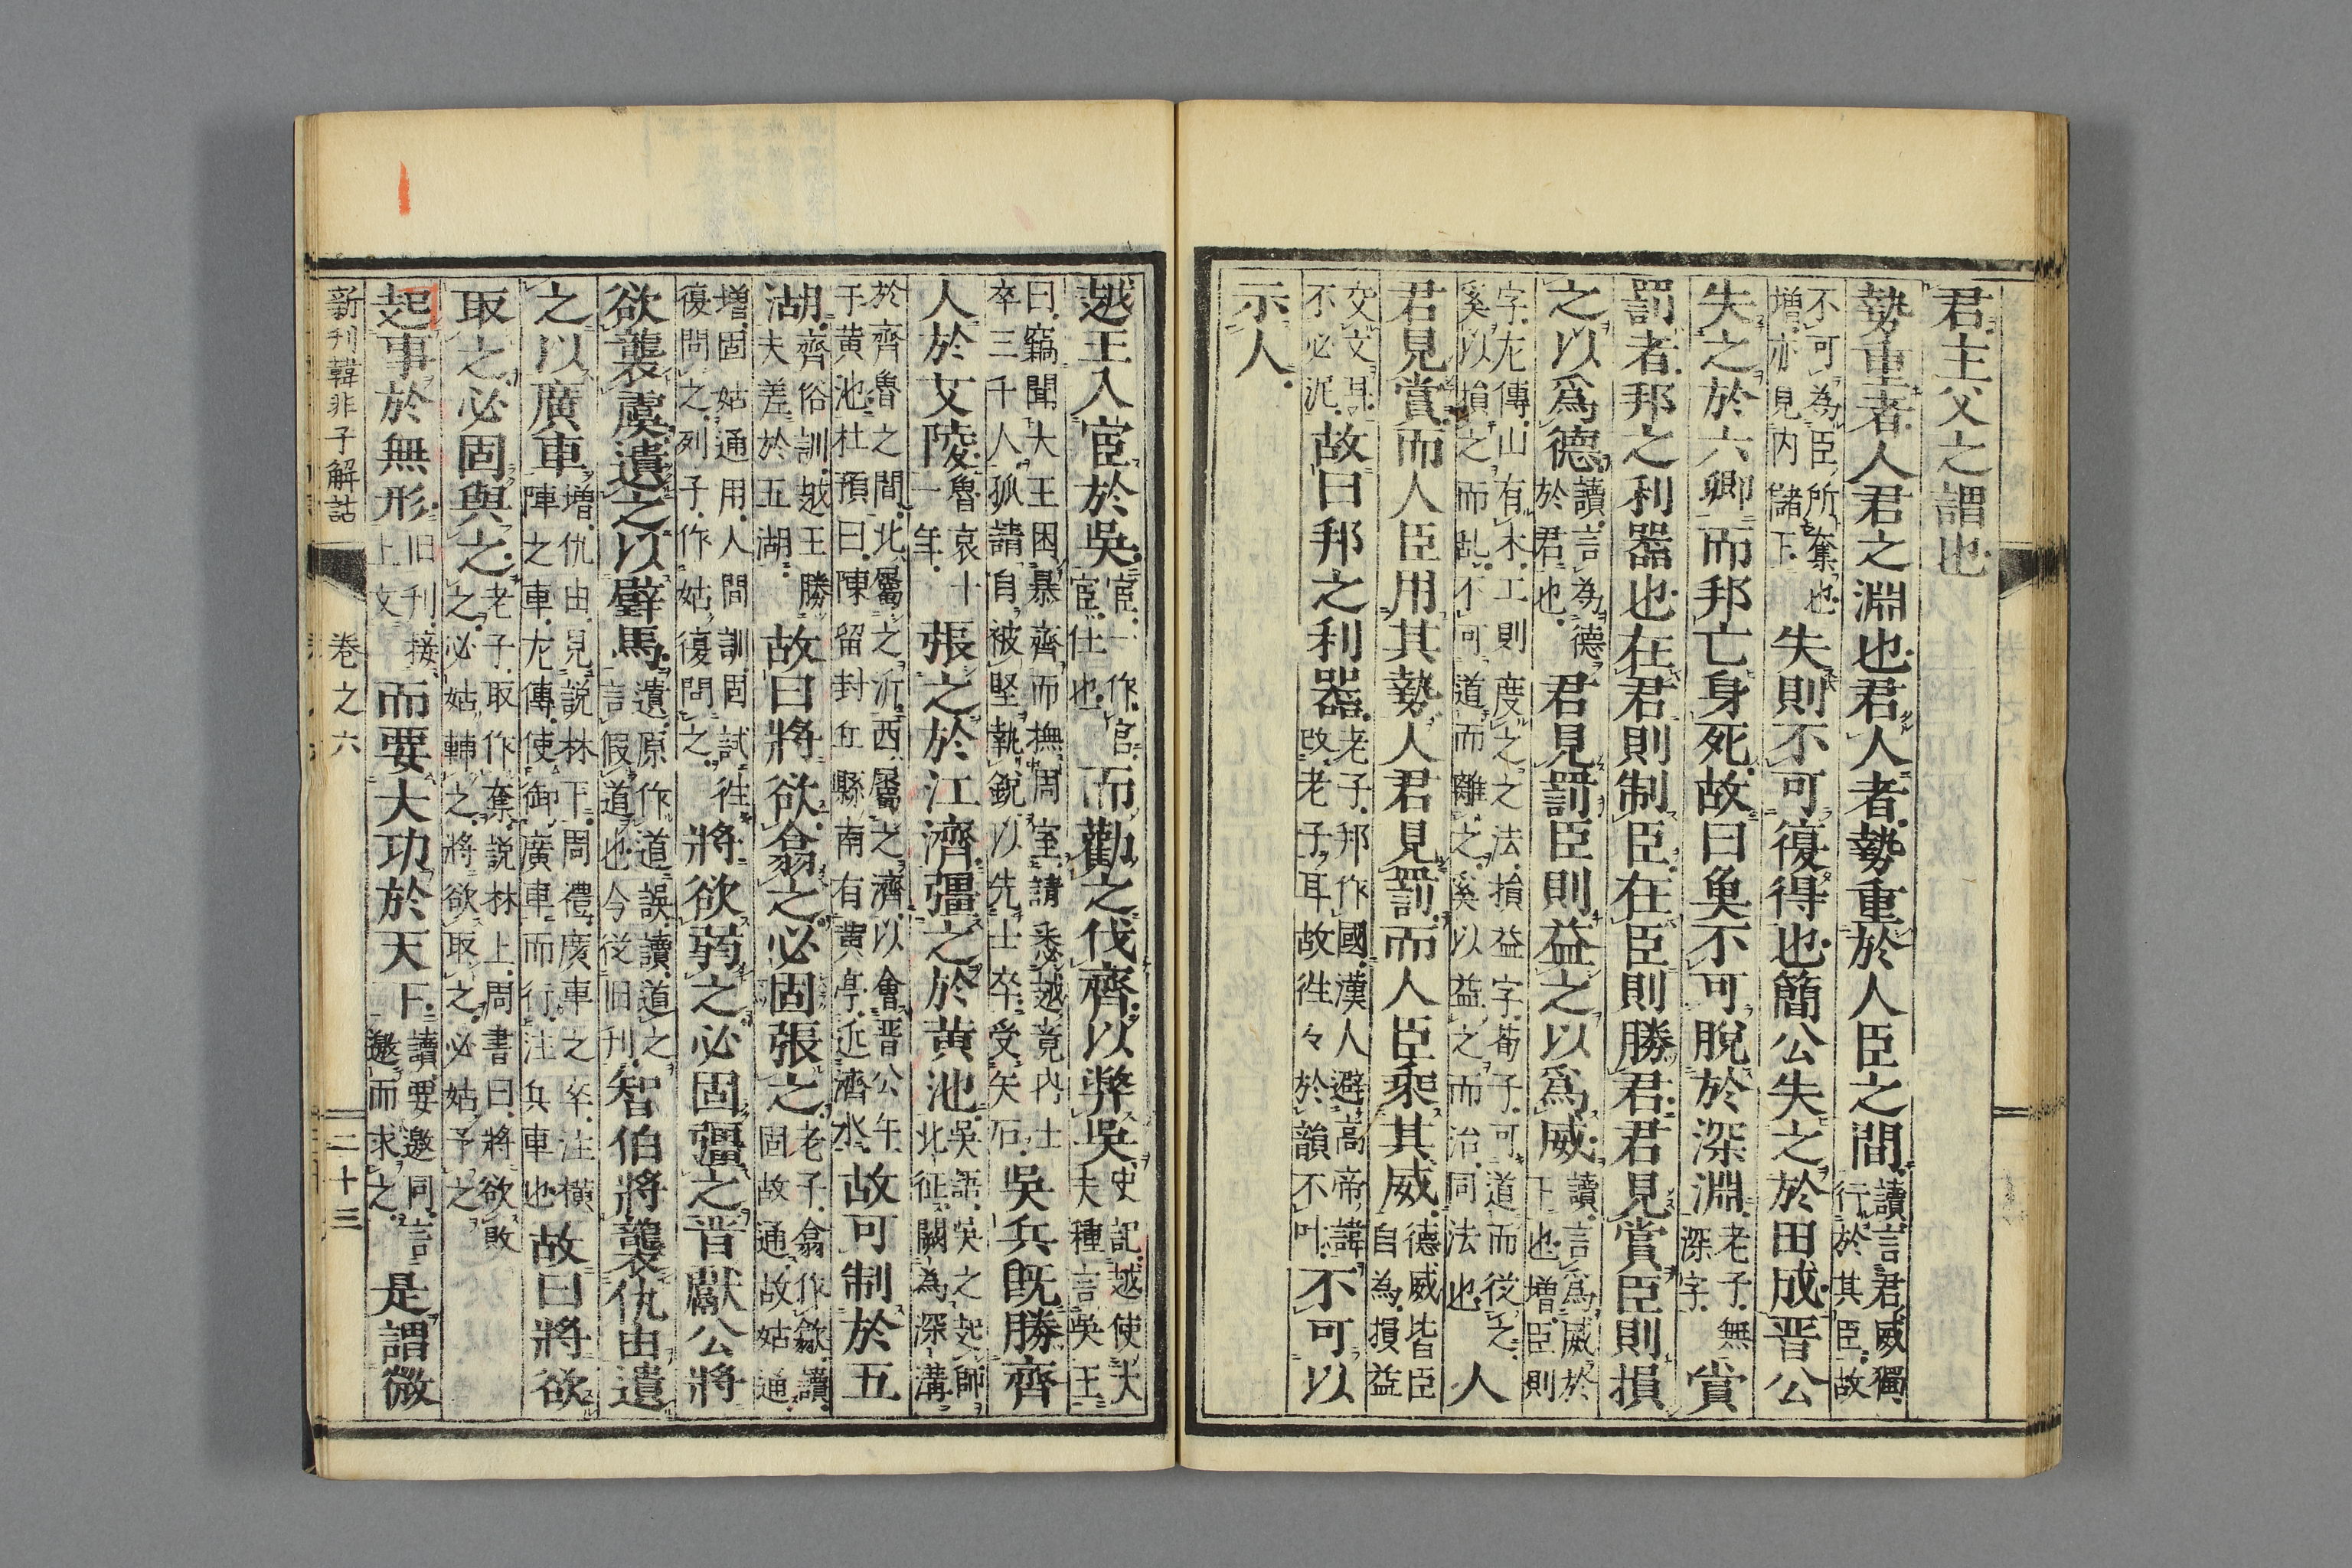 君主父之謂也
勢重者人君之淵也君人者勢重於人臣之間讀言君威獨行於其臣故
不可為臣所奪也增亦見内儲下失則不可復得也簡公失之於田成晋公
失之於六卿而邦亡身死故曰魚不可脫於深淵老子無深字賞
罰者邦之利器也在君則制臣在臣則勝君君見賞臣則損
之以爲德讀言為德於君也君見罰臣則益之以爲威讀言爲威於下也增臣則
字左傳山有木工則度之之法損益字荀子可道而從之奚以損之而乱不可道而離之奚以益之而治同法也人
君見賞而人臣用其勢人君見罰而人臣乘其威德威皆臣自為損益
交文異不必泥故曰邦之利器老子邦作國漢人避高帝諱改老子耳故徃々於韻不叶不可以
示人
越王入宦於吳宦一作官宦仕也而勸之伐齊以弊吳史記越使大夫種言吳王
曰竊聞大王困暴齊而撫周室請悉越竟内士卒三千人孤請自被堅執銳以先士卒受矢石吳兵既勝齊
人於艾陵魯哀十一年張之於江濟彊之於黄池吳語吳之起師北征闕為深溝
於齊魯之間北屬之沂西屬之濟以會晋公午于黄池杜預曰陳留封丘縣南有黄亭近濟水故可制於五
湖齊俗訓越王勝夫差於五湖故曰將欲翕之必固張之老子翕作歙讀固故通故姑通
增固姑通用人間訓固試徃復問之列子作姑復問之將欲弱之必固彊之晋獻公將
欲襲虞遺之以璧馬遺原作道誤讀道之言假道也今從旧刊智伯將襲仇由遺
之以廣車增仇由見説林下周禮廣車之卒注横陣之車左傳使御廣車而行注兵車也故曰將欲
取之必固與之老子取作奪説林上周書曰將欲敗之必姑輔之將欲取之必姑予之
起事於無形旧刊接上文而要大功於天下讀要邀同言邀而求之是謂微
新刊韓非子解詁 卷之六 二十三